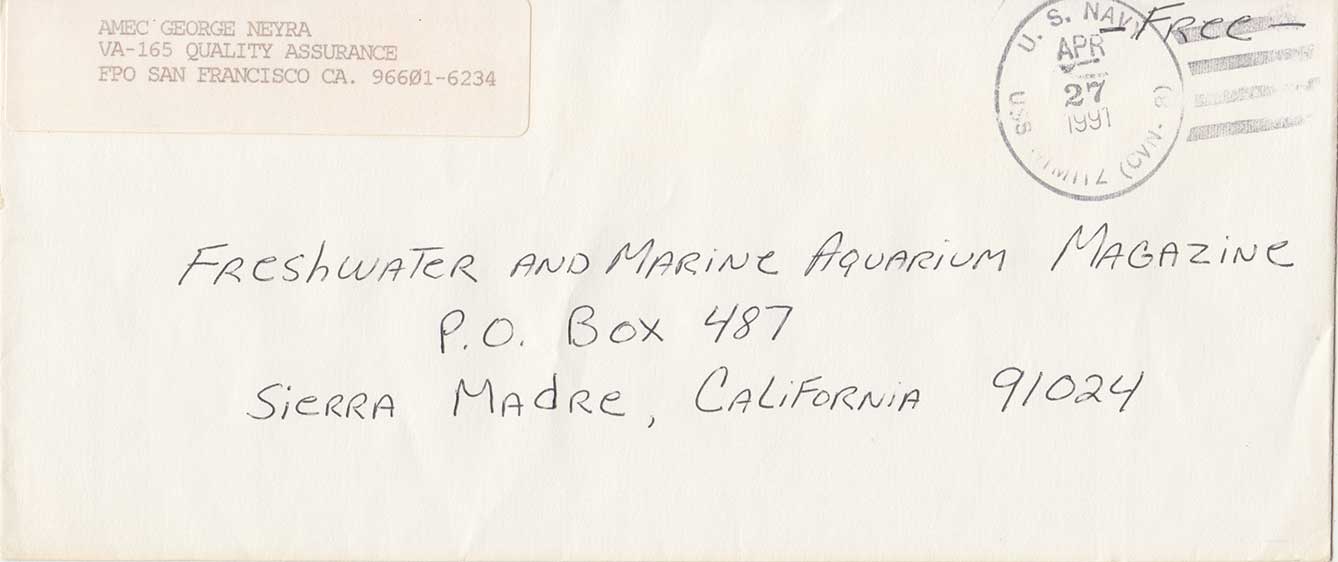 AMEC GEORGE NEYRA
VA-165 QUALITY ASSURANCE
FPO SAN FRANCISCO CA. 96601-6234
U. S. NAVY
APR
27
1991
USS NIMITZ (CVN-8)
- Free -
Freshwater and Marine Aquarium Magazine
P.O. Box 487
Sierra Madre, California 91024